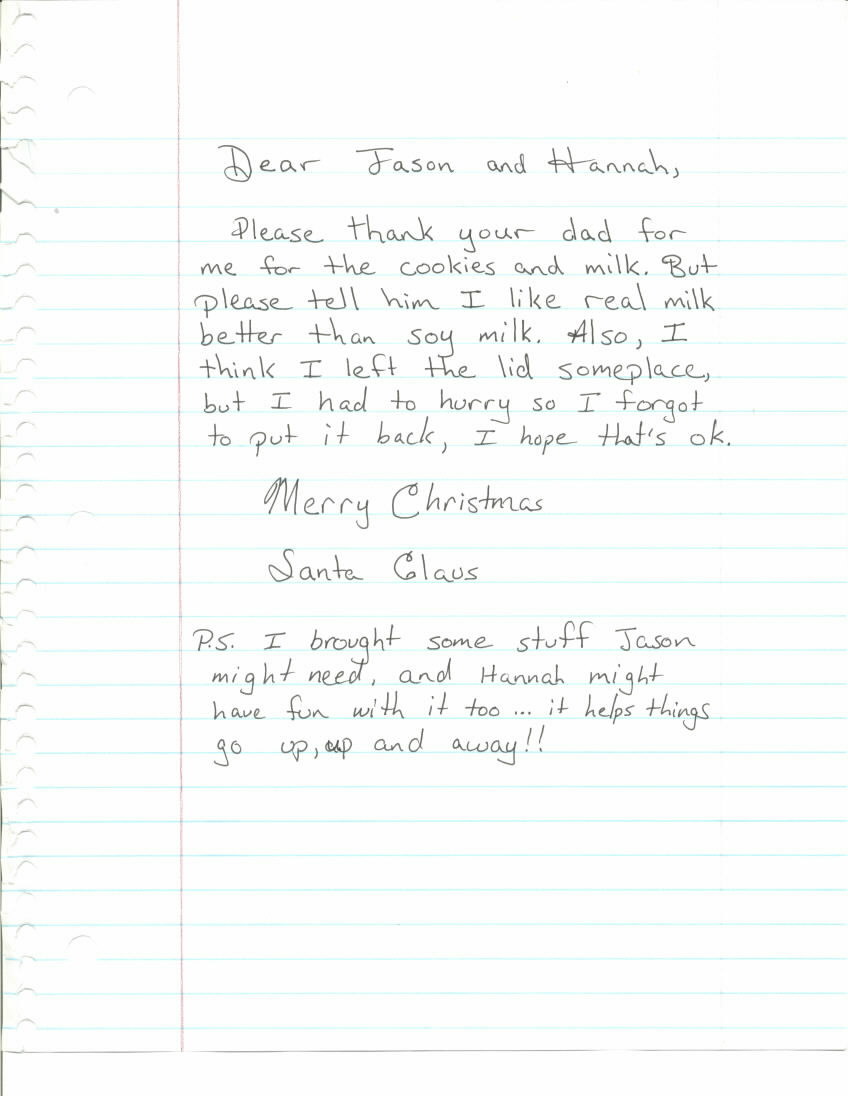 Dear Jason and Hannah,
Please thank your dad for
me for the cookies and milk. But
please tell him I like real milk
better than soy milk. Also, I
think I left the lid someplace,
but I had to hurry so I forgot
to put it back, I hope that's ok.
Merry Christmas
Santa Claus
P.S. I brought some stuff Jason
might need, and Hannah might
have fun with it too... it helps things
go up, up and away!!